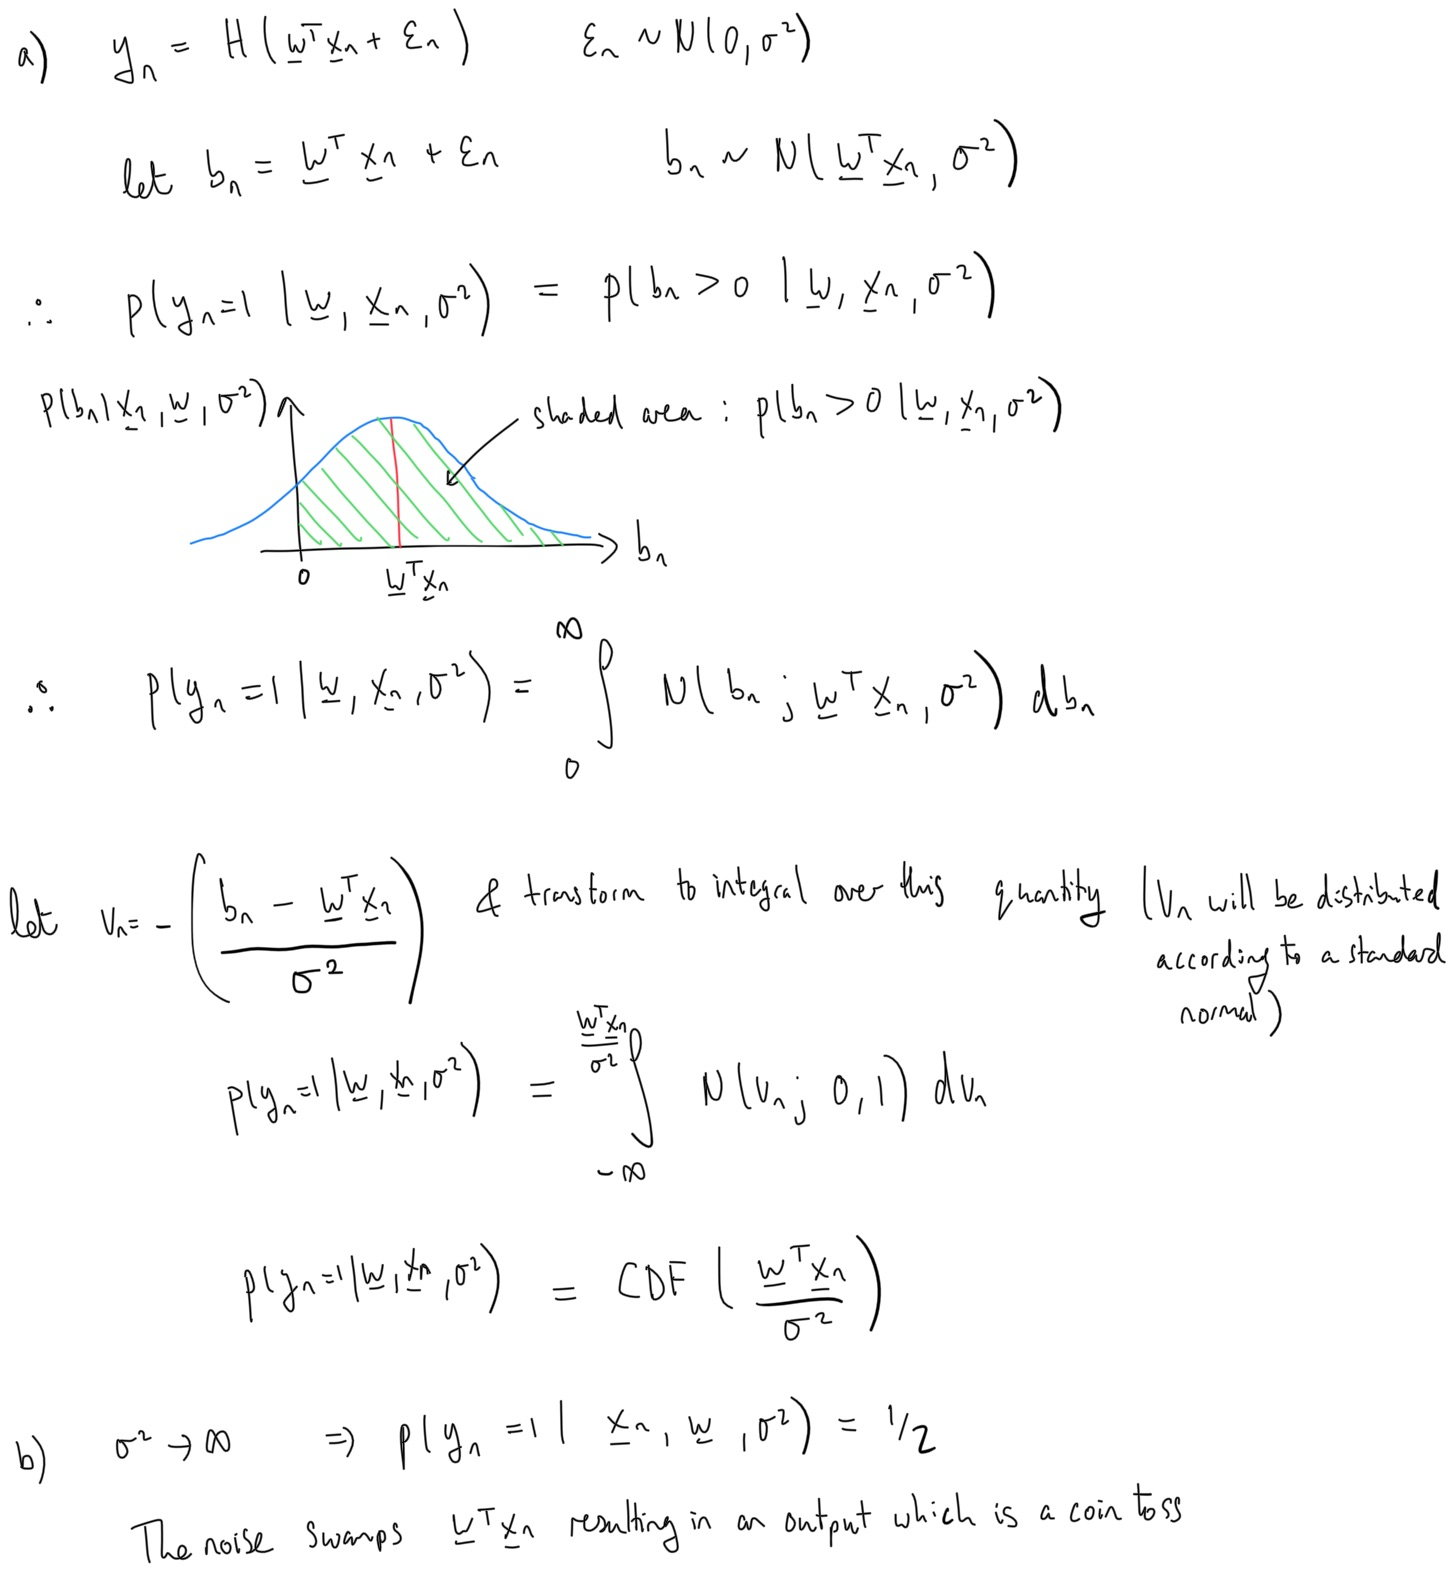 a) yₙ = H(w̲ᵀx̲ₙ + εₙ) εₙ ~ N(0, σ²)
let bₙ = w̲ᵀ x̲ₙ + εₙ bₙ ~ N(w̲ᵀx̲ₙ, σ²)
∴ p(yₙ=1 | w̲, x̲ₙ, σ²) = p(bₙ > 0 | w̲, x̲ₙ, σ²)
p(bₙ|x̲ₙ, w̲, σ²) shaded area : p(bₙ > 0 | w̲, x̲ₙ, σ²)
bₙ
0 w̲ᵀx̲ₙ
∴ p(yₙ = 1 | w̲, x̲ₙ, σ²) = ∫₀^∞ N(bₙ ; w̲ᵀx̲ₙ, σ²) dbₙ
let vₙ = -((bₙ - w̲ᵀx̲ₙ)/σ²) & transform to integral over this quantity (vₙ will be distributed
according to a standard
normal)
p(yₙ=1 | w̲, x̲ₙ, σ²) = ∫_{-∞}^{w̲ᵀx̲ₙ/σ²} N(vₙ; 0, 1) dvₙ
p(yₙ=1 | w̲, x̲ₙ, σ²) = CDF(w̲ᵀx̲ₙ/σ²)
b) σ² → ∞ ⇒ p(yₙ = 1 | x̲ₙ, w̲, σ²) = 1/2
The noise swamps w̲ᵀx̲ₙ resulting in an output which is a coin toss